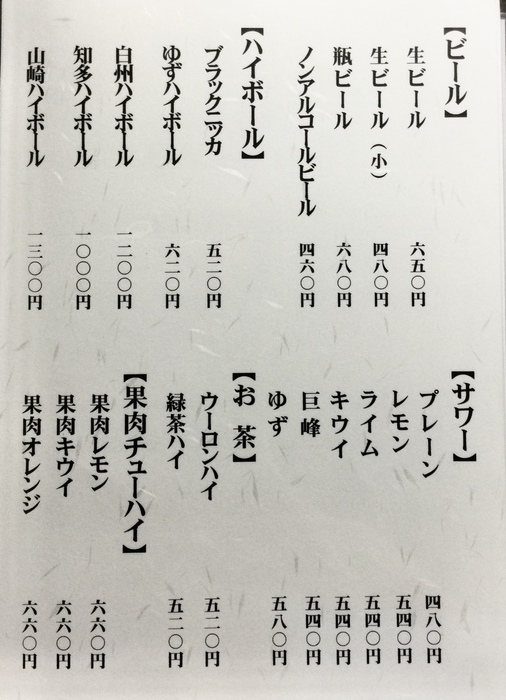 【ビール】
生ビール 六五〇円
生ビール（小） 四八〇円
瓶ビール 六八〇円
ノンアルコールビール 四六〇円
【ハイボール】
ブラックニッカ 五二〇円
ゆずハイボール 六二〇円
白州ハイボール 一二〇〇円
知多ハイボール 一〇〇〇円
山崎ハイボール 一三〇〇円
【サワー】
プレーン 四八〇円
レモン 五四〇円
ライム 五四〇円
キウイ 五四〇円
巨峰 五四〇円
ゆず 五八〇円
【お茶】
ウーロンハイ 五二〇円
緑茶ハイ 五二〇円
【果肉チューハイ】
果肉レモン 六六〇円
果肉キウイ 六六〇円
果肉オレンジ 六六〇円